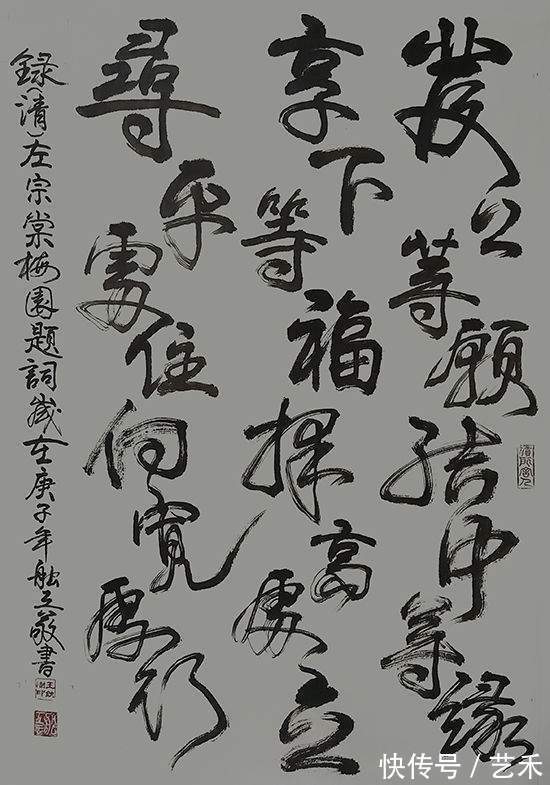 發上等願結中等緣
享下等福擇高處立
尋平處住向寬處行
録(清)左宗棠梅園題詞歲在庚子年敬書
快传号 / 艺禾